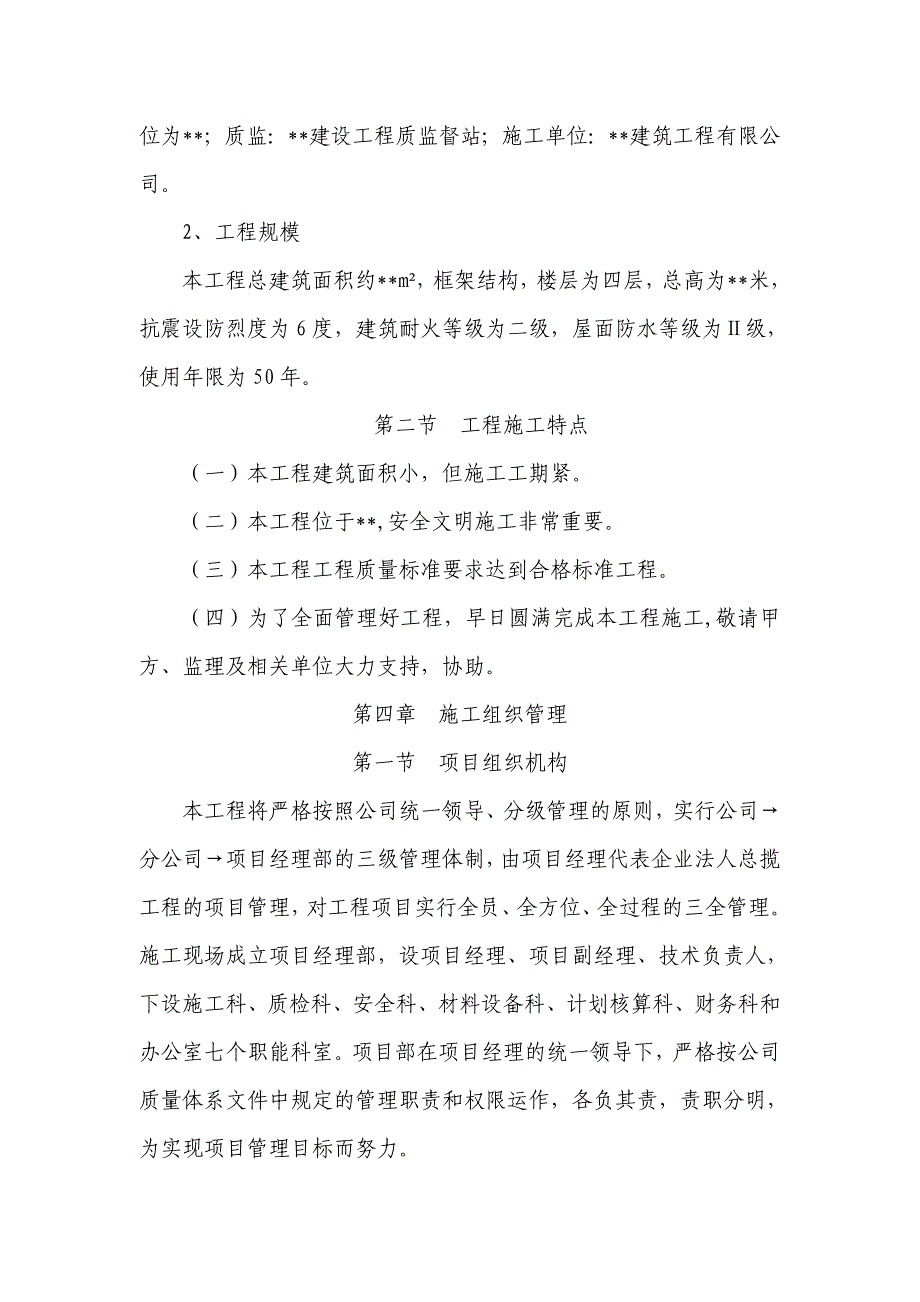 位为**；质监：**建设工程质监督站；施工单位：**建筑工程有限公
司。
2、工程规模
本工程总建筑面积约**m²，框架结构，楼层为四层，总高为**米，
抗震设防烈度为 6 度，建筑耐火等级为二级，屋面防水等级为 II 级，
使用年限为 50 年。
第二节　工程施工特点
（一）本工程建筑面积小，但施工工期紧。
（二）本工程位于**,安全文明施工非常重要。
（三）本工程工程质量标准要求达到合格标准工程。
（四）为了全面管理好工程，早日圆满完成本工程施工,敬请甲
方、监理及相关单位大力支持，协助。
第四章　施工组织管理
第一节　项目组织机构
本工程将严格按照公司统一领导、分级管理的原则，实行公司→
分公司→项目经理部的三级管理体制，由项目经理代表企业法人总揽
工程的项目管理，对工程项目实行全员、全方位、全过程的三全管理。
施工现场成立项目经理部，设项目经理、项目副经理、技术负责人，
下设施工科、质检科、安全科、材料设备科、计划核算科、财务科和
办公室七个职能科室。项目部在项目经理的统一领导下，严格按公司
质量体系文件中规定的管理职责和权限运作，各负其责，责职分明，
为实现项目管理目标而努力。